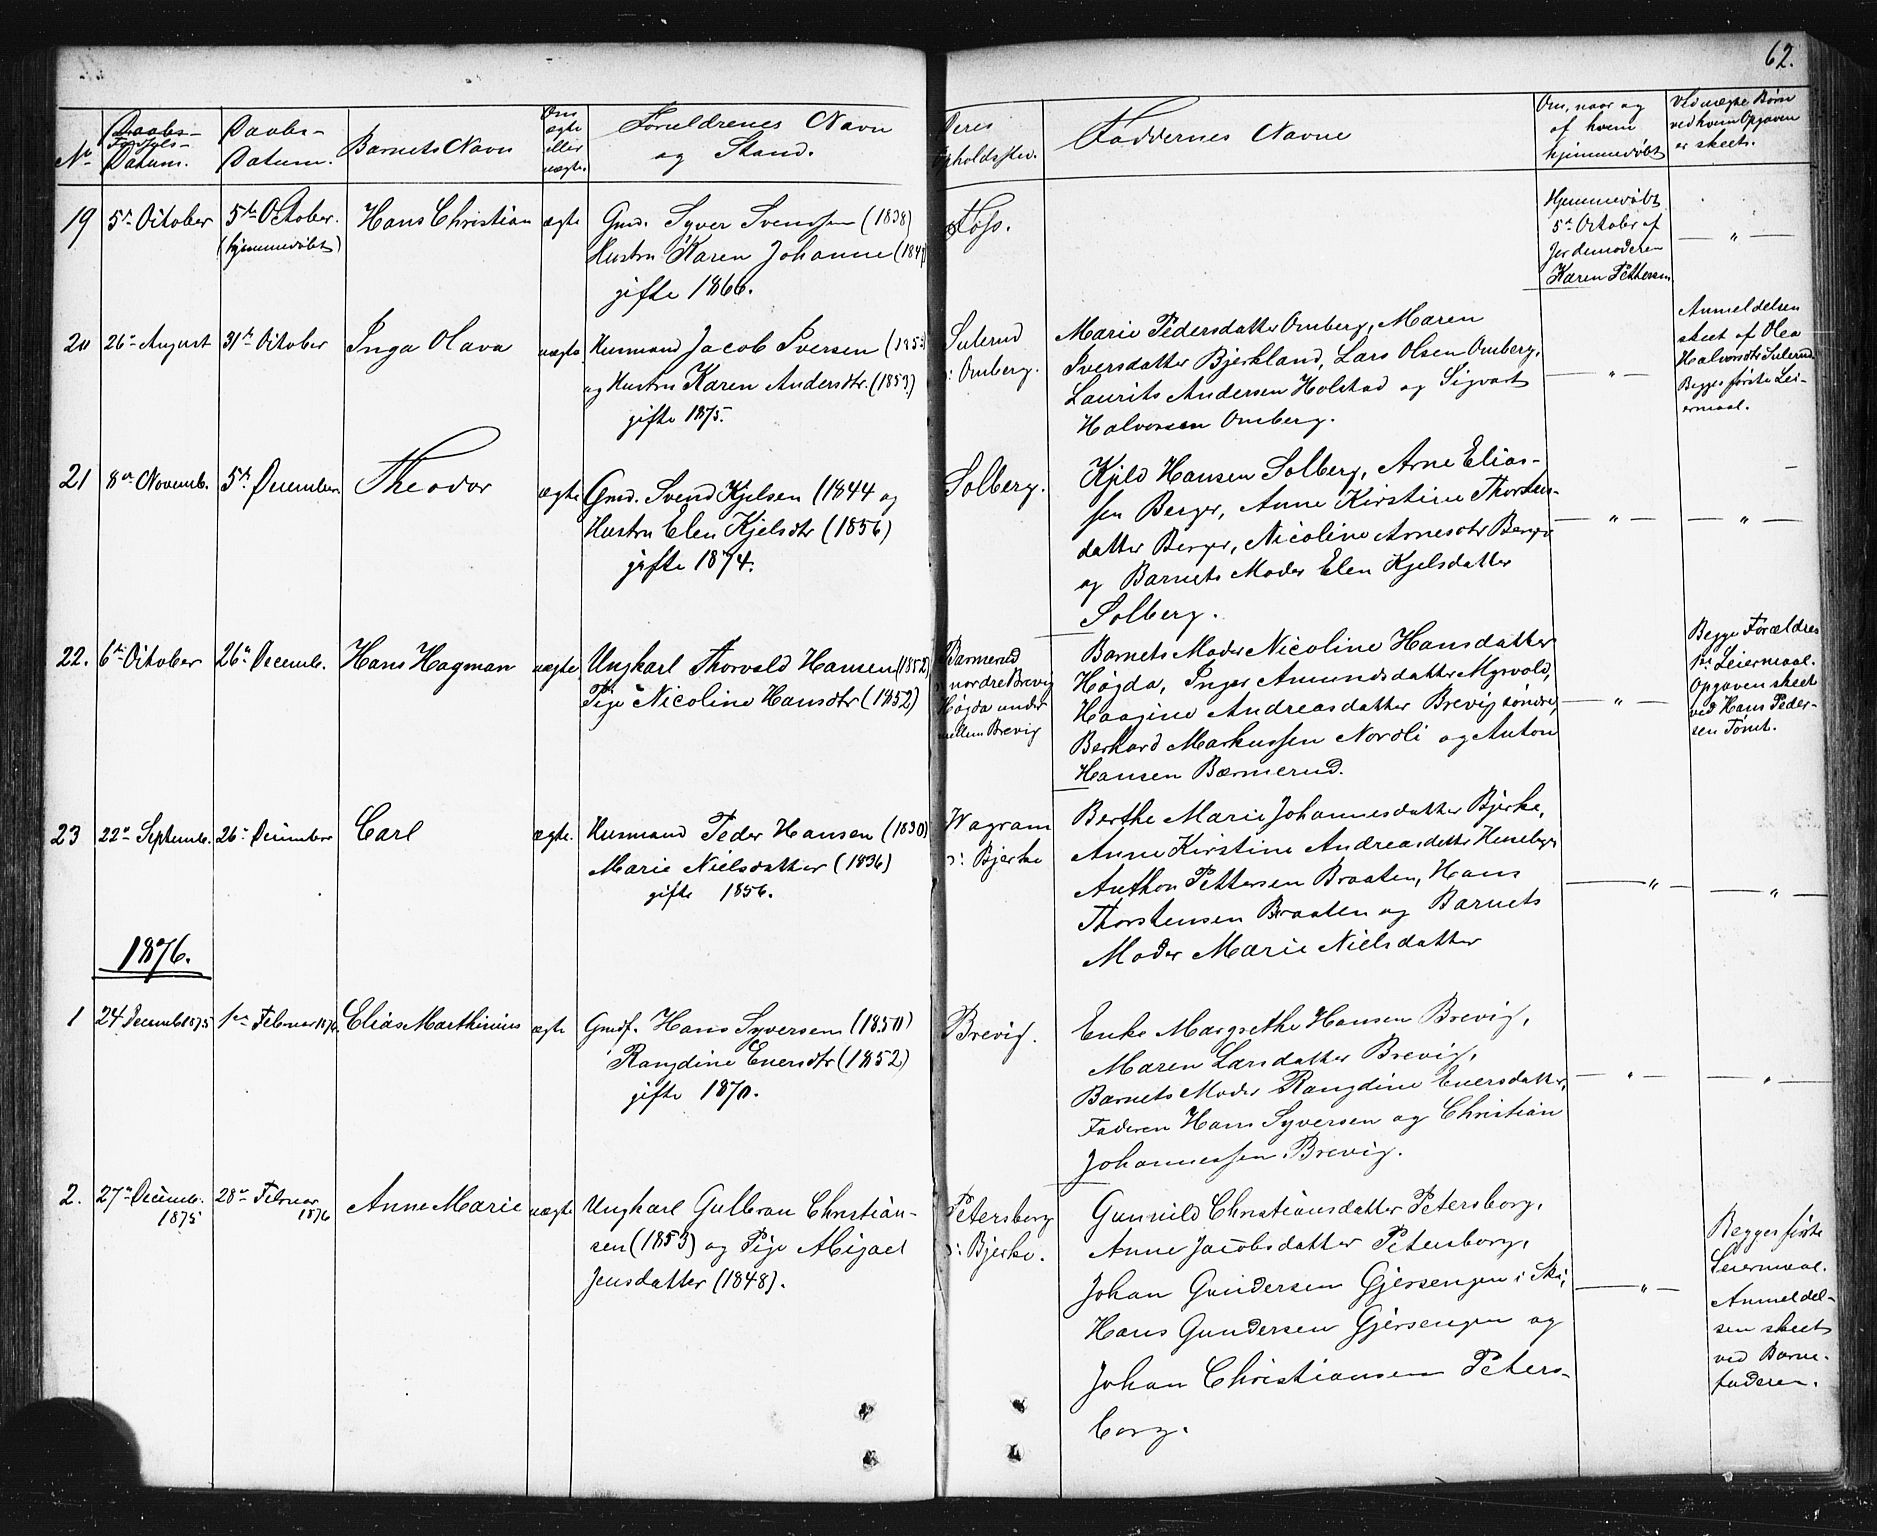 62.
No
Daabs-
Fødsels-
Datum.
Daabs-
Datum.
Barnets Navn
Om
ægte
eller
uægte.
Forældrenes Navn
og Stand.
Deres
Opholdssted.
Faddernes Navne
Om, naar og
af hvem
hjemmedøbt
Ved uægte Børn
ved hvem Opgaven
er skeet.
19
5te October
5te October.
(hjemmedøbt)
Hans Christian
ægte
Gmd. Syver Svendsen (1838)
Hustru Karen Johanne
gifte 1866.
Hjemmedøbt
5te October af
Jordemoderen
Karen Pettersen
— " —
20
26de August
31te October
Inga Olava
uægte
Husmand Jacob Iversen
og Hustru Karen Andersdtr. (1853)
gifte 1875.
Sulerud
: Omberg.
Marie Pedersdatter Omberg, Maren
Iversdatter Bjerkland, Lars Olsen Omberg,
Laurits Andersen Holstad og Sigvart
Halvorsen Omberg.
— " —
Anmeldelsen
skeet af Olea
Halvorsdtr Sulerud.
Begges første Lei-
ermaal.
21
8de Novemb.
5te December
Theodor
ægte
Gmd. Svend Kjelsen (1844 og
Hustru Elen Kjelsdtr (1856)
gifte 1874.
Solberg.
Kjeld Hansen Solberg, Arne Elias-
sen Berger, Anne Kirstine Thorstens-
datter Berger, Nicoline Arnesdtr Berger
og Barnets Moder Elen Kjelsdatter
Solberg.
— " —
— " —
22.
6te October
26de Decemb.
Hans Hagman
uægte
Ungkarl Thorvald Hansen (1852)
Pige Nicoline Hansdtr (1852)
Bærmerud
: nordre Brevig
Høgda under
mellem Brevig
Barnets Moder Nicoline Hansdatter
Høgda, Inger Amundsdatter Myrvold,
Haagine Andreasdatter Brevig søndre,
Berhard Markussen Nordli og Anton
Hansen Bærmerud.
— " —
Begge Forældres
1ste Leiermaal.
Opgaven skeet
ved Hans Peder-
sen Tømt.
23
22de Septemb.
26de December
Carl
ægte.
Husmand Peder Hansen (1830)
Marie Nielsdatter (1836)
gifte 1856.
Wagram
: Bjerke
Berthe Marie Johannesdatter Bjerke,
Anne Kirstine Andreasdatter
Anthon Pettersen Braaten, Hans
Thorstensen Braaten og Barnets
Moder Marie Nielsdatter
— " —
— " —
1876.
1
24 Decemb 1875
1ste Februar 1876
Elias Marthinius
ægte
Gmdf. Hans Syversen (1850)
Rangdine Enersdtr (1852)
gifte 1870.
Brevig.
Enke Margrethe Hansen Brevig,
Maren Larsdatter Brevig,
Barnets Moder Rangdine Enersdatter,
Faderen Hans Syversen og Christian
Johannessen Brevig.
— " —
— " —
2.
27de Decemb.
1875
28de Februar
1876
Anne Marie
uægte
Ungkarl Gulbran Christian-
sen (1853) og Pige Abigael
Jensdatter (1848).
Petersborg
: Bjerke.
Gunnild Christiansdatter Petersborg,
Anne Jacobsdatter Petersborg,
Johan Gundersen Gjersengen i Ski,
Hans Gundersen Gjersengen og
Johan Christiansen Peters-
borg.
— " —
Begges første
Leiermaal.
Anmeldel-
sen skeet
ved Barne-
faderen.